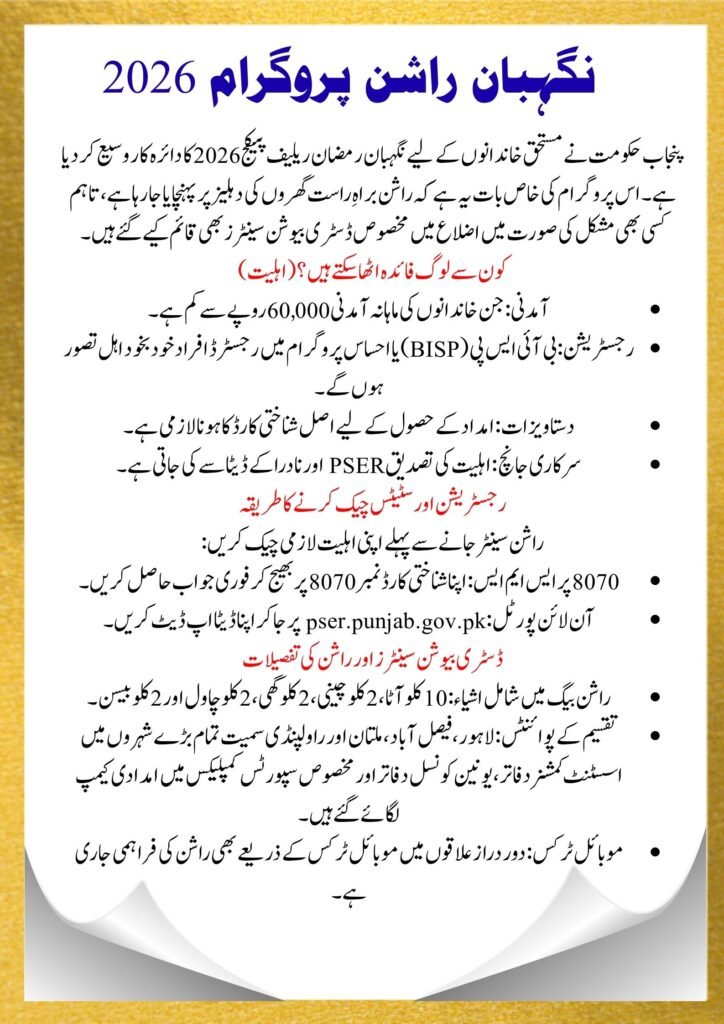 نگہبان راشن پروگرام 2026
پنجاب حکومت نے مستحق خاندانوں کے لیے نگہبان رمضان ریلیف پیکج 2026 کا دائرہ کار وسیع کر دیا
ہے۔ اس پروگرام کی خاص بات یہ ہے کہ راشن براہِ راست گھروں کی دہلیز پر پہنچایا جا رہا ہے، تاہم
کسی بھی مشکل کی صورت میں اضلاع میں مخصوص ڈسٹری بیوشن سینٹرز بھی قائم کیے گئے ہیں۔
کون سے لوگ فائدہ اٹھا سکتے ہیں؟ (اہلیت)
• آمدنی: جن خاندانوں کی ماہانہ آمدنی 60,000 روپے سے کم ہے۔
• رجسٹریشن: بی آئی ایس پی (BISP) یا احساس پروگرام میں رجسٹرڈ افراد خود بخود اہل تصور
ہوں گے۔
• دستاویزات: امداد کے حصول کے لیے اصل شناختی کارڈ کا ہونا لازمی ہے۔
• سرکاری جانچ: اہلیت کی تصدیق PSER اور نادرا کے ڈیٹا سے کی جاتی ہے۔
رجسٹریشن اور سٹیٹس چیک کرنے کا طریقہ
راشن سینٹر جانے سے پہلے اپنی اہلیت لازمی چیک کریں:
• 8070 پر ایس ایم ایس: اپنا شناختی کارڈ نمبر 8070 پر بھیج کر فوری جواب حاصل کریں۔
• آن لائن پورٹل: pser.punjab.gov.pk پر جا کر اپنا ڈیٹا اپ ڈیٹ کریں۔
ڈسٹری بیوشن سینٹرز اور راشن کی تفصیلات
• راشن بیگ میں شامل اشیاء: 10 کلو آٹا، 2 کلو چینی، 2 کلو گھی، 2 کلو چاول اور 2 کلو بیسن۔
• تقسیم کے پوائنٹس: لاہور، فیصل آباد، ملتان اور راولپنڈی سمیت تمام بڑے شہروں میں
اسسٹنٹ کمشنر دفاتر، یونین کونسل دفاتر اور مخصوص سپورٹس کمپلیکس میں امدادی کیمپ
لگائے گئے ہیں۔
• موبائل ٹرکس: دور دراز علاقوں میں موبائل ٹرکس کے ذریعے بھی راشن کی فراہمی جاری
ہے۔